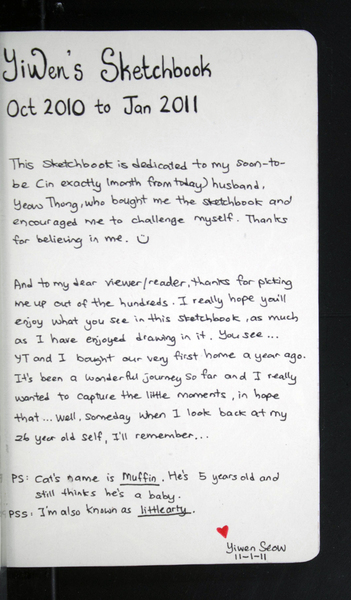 YiWen's Sketchbook
Oct 2010 to Jan 2011
This sketchbook is dedicated to my soon-to-
be (in exactly 1month from today) husband,
Yeow Thong, who bought me the sketchbook and
encouraged me to challenge myself. Thanks
for believing in me.
And to my dear viewer/reader, thanks for picking
me up out of the hundreds. I really hope you'll
enjoy what you see in this sketchbook, as much
as I have enjoyed drawing in it. You see...
YT and I bought our very first home a year ago.
It's been a wonderful journey so far and I really
wanted to capture the little moments, in hope
that... Well, someday when I look back at my
26 year old self, I'll remember...
PS: Cat's name is Muffin. He's 5 years old and
still thinks he's a baby.
PSS: I'm also known as littlearty.
Yiwen Seow
11-1-11